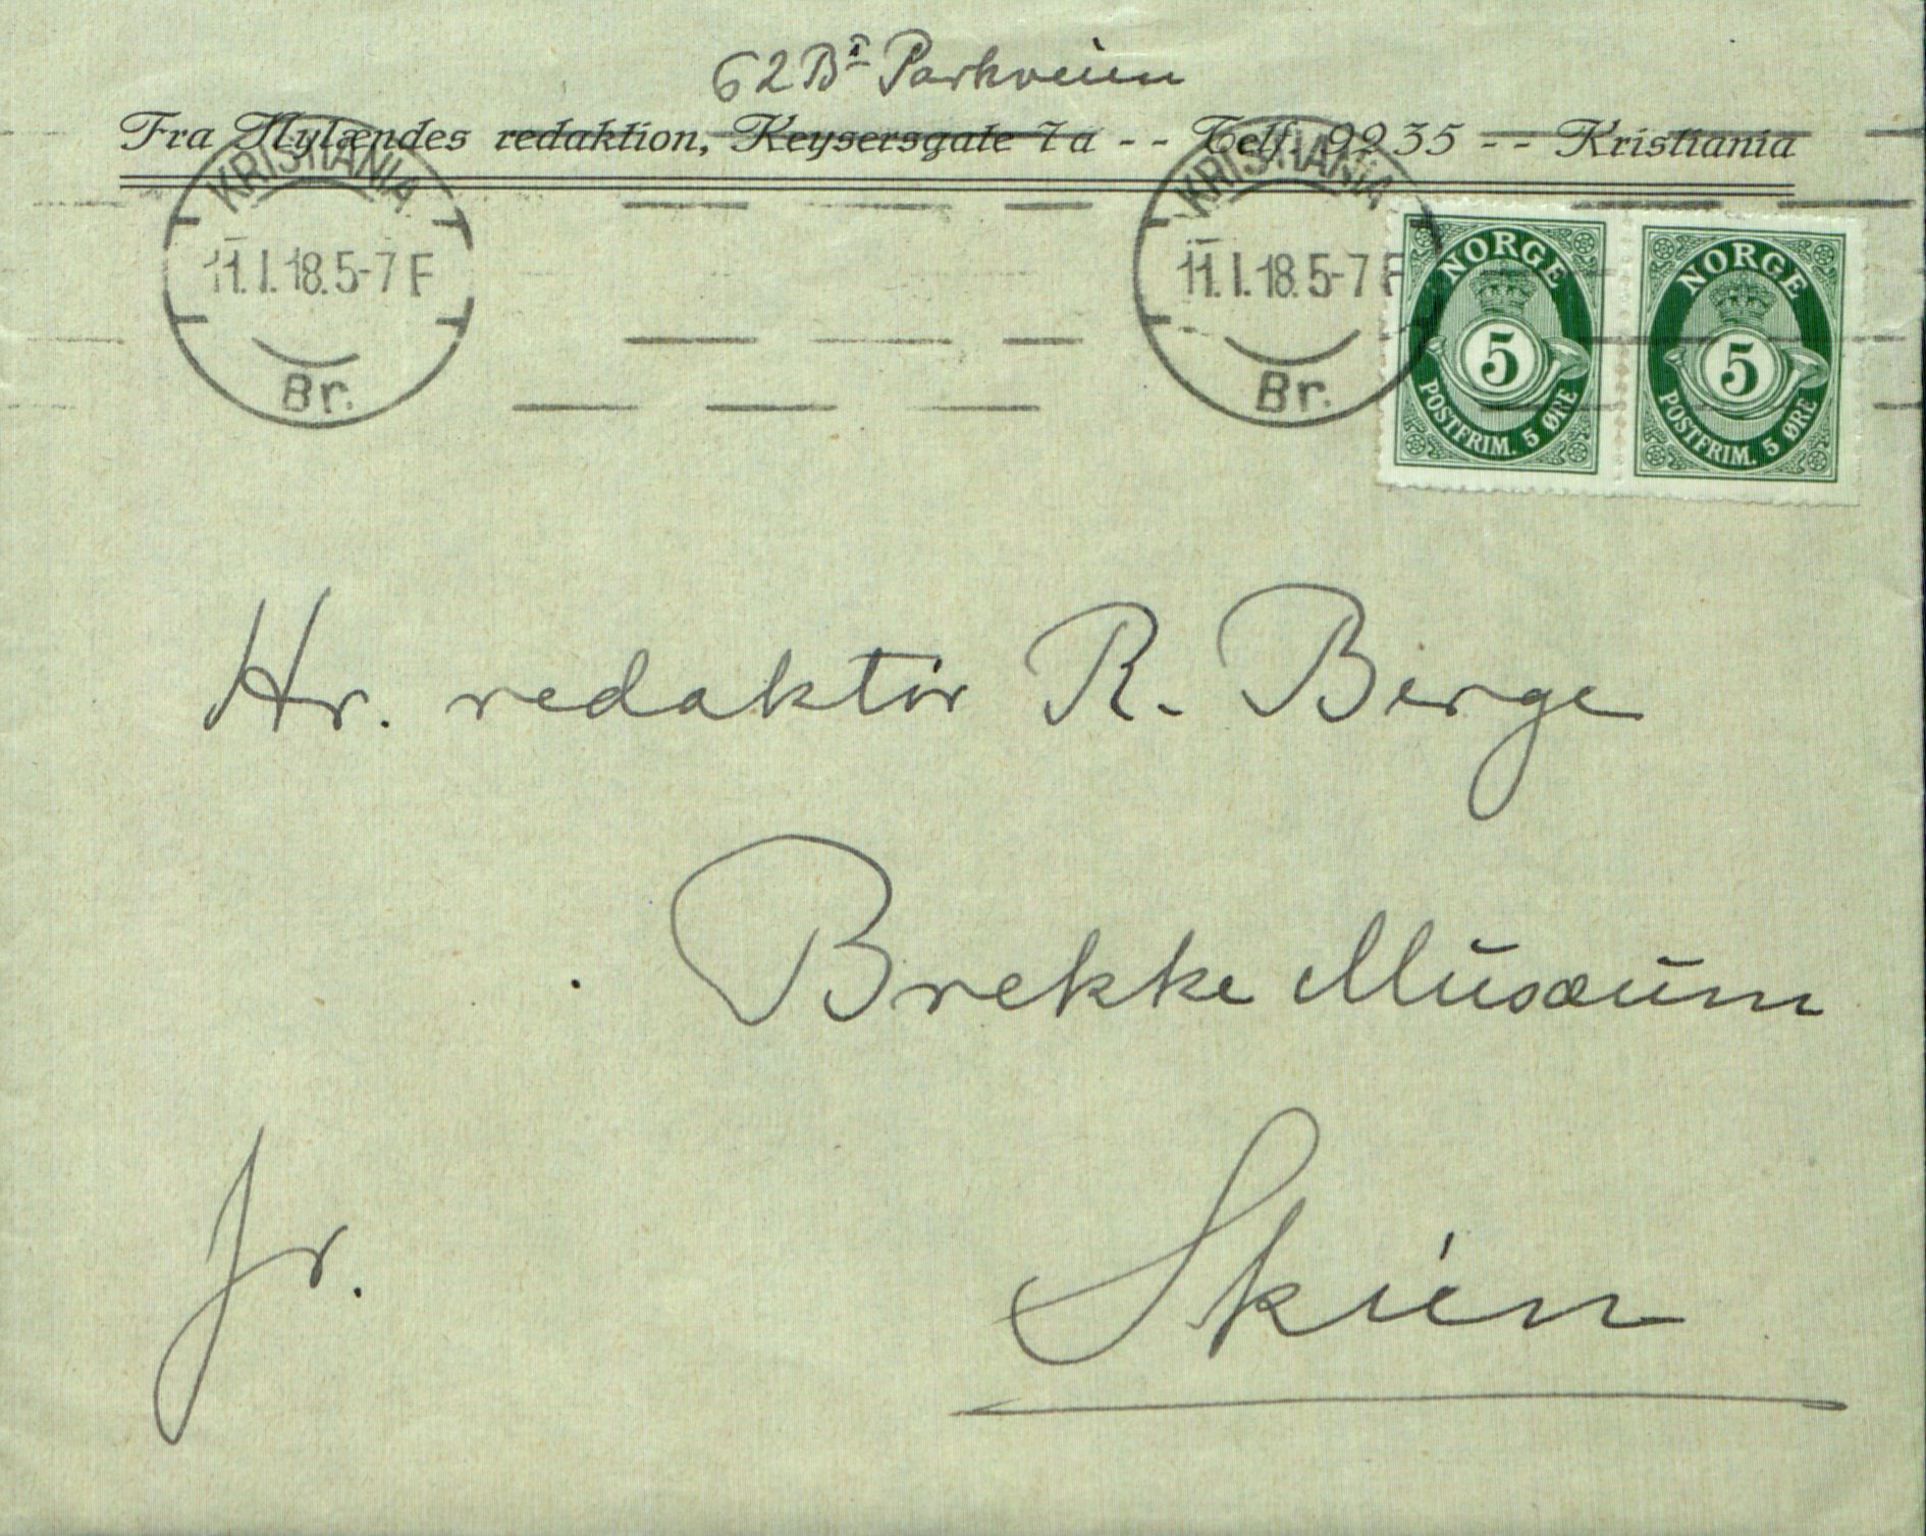 62 B I Parkveien
Fra Nylændes redaktion, Keysersgate 7a - - Telf. 9935 - - Kristiania
KRISTIANIA
11.I.18.5-7 F
Br.
KRISTIANIA
11.I.18.5-7 F
Br.
NORGE
5
POSTFRIM. 5 ØRE
NORGE
5
POSTFRIM. 5 ØRE
Hr. redaktør R. Berge
Brekke Musæum
Skien
Fr.